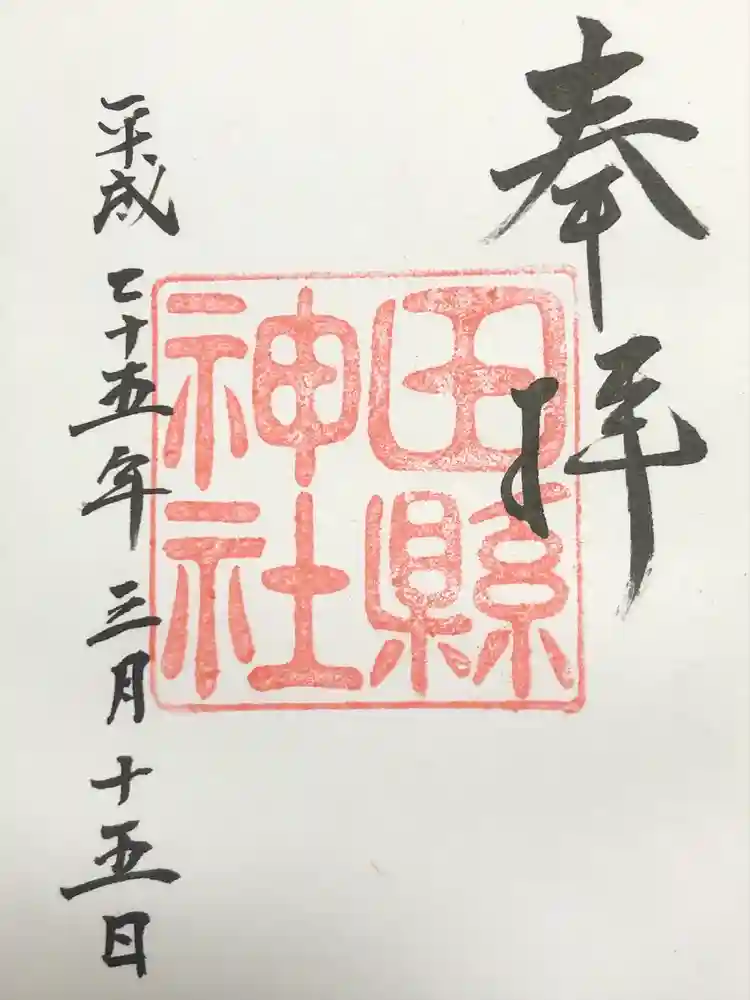 奉拝
田縣
神社
平成二十五年三月十五日